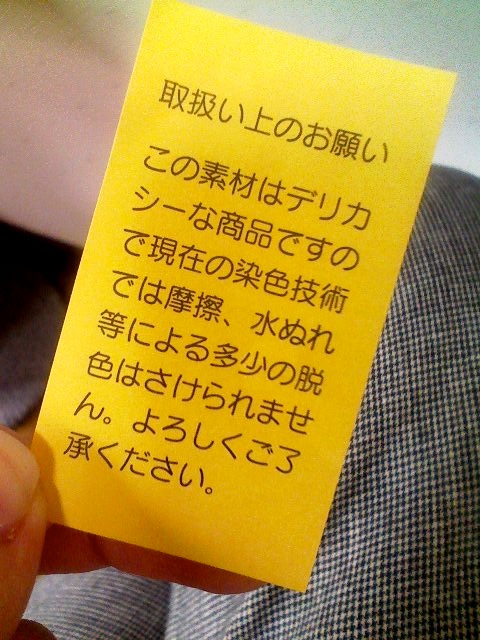 取扱い上のお願い
この素材はデリカ
シーな商品ですの
で現在の染色技術
では摩擦、水ぬれ
等による多少の脱
色はさけられませ
ん。よろしくご了
承ください。